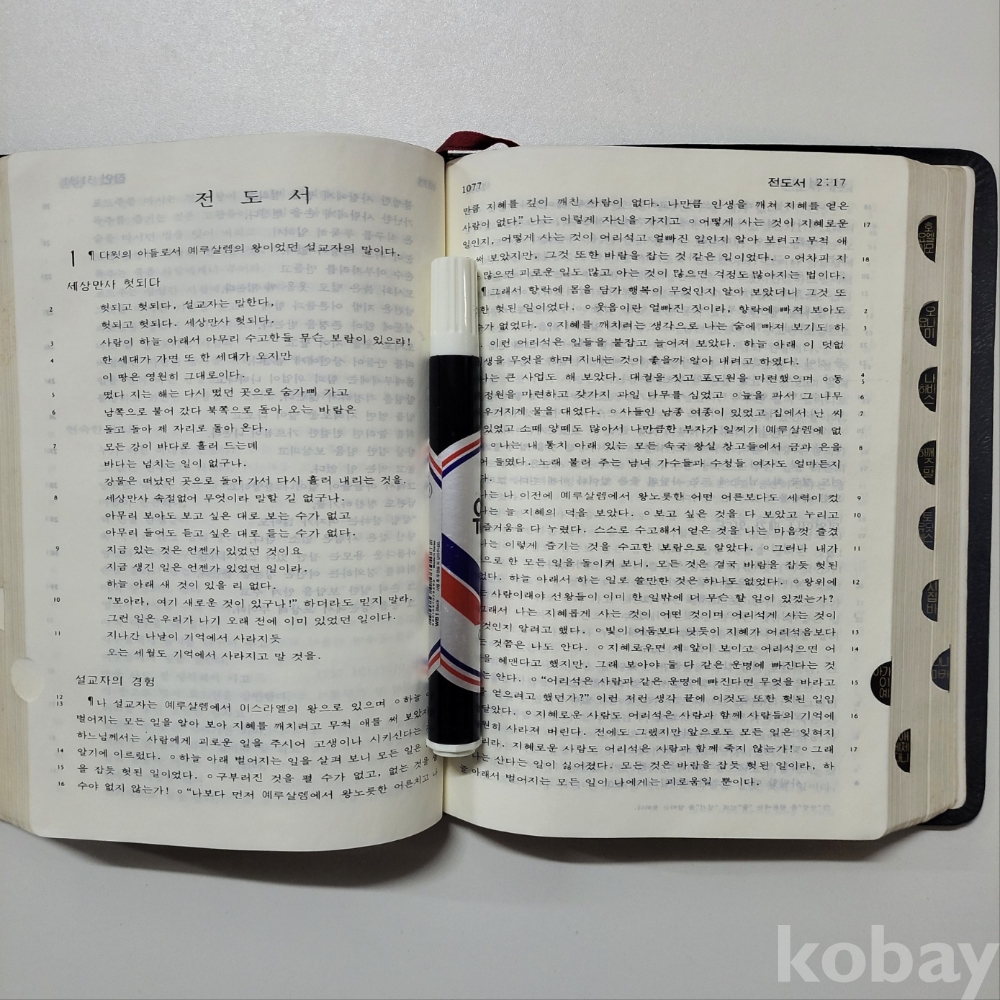 전 도 서
1 ¶다윗의 아들로서 예루살렘의 왕이었던 설교자의 말이다.
세상만사 헛되다
2 헛되고 헛되다, 설교자는 말한다,
헛되고 헛되다. 세상만사 헛되다.
3 사람이 하늘 아래서 아무리 수고한들 무슨 보람이 있으랴!
4 한 세대가 가면 또 한 세대가 오지만
이 땅은 영원히 그대로이다.
5 떴다 지는 해는 다시 떴던 곳으로 숨가삐 가고
6 남쪽으로 불어 갔다 북쪽으로 돌아 오는 바람은
돌고 돌아 제 자리로 돌아 온다.
7 모든 강이 바다로 흘러 드는데
바다는 넘치는 일이 없구나.
강물은 떠났던 곳으로 돌아 가서 다시 흘러 내리는 것을.
8 세상만사 속절없어 무엇이라 말할 길 없구나.
아무리 보아도 보고 싶은 대로 보는 수가 없고
아무리 들어도 듣고 싶은 대로 듣는 수가 없다.
9 지금 있는 것은 언젠가 있었던 것이요
지금 생긴 일은 언젠가 있었던 일이라.
하늘 아래 새 것이 있을 리 없다.
10 "보아라, 여기 새로운 것이 있구나!" 하더라도 믿지 말라.
그런 일은 우리가 나기 오래 전에 이미 있었던 일이다.
11 지나간 나날이 기억에서 사라지듯
오는 세월도 기억에서 사라지고 말 것을.
설교자의 경험
12 13 ¶나 설교자는 예루살렘에서 이스라엘의 왕으로 있으며 ○하늘
벌어지는 모든 일을 알아 보아 지혜를 깨치려고 무척 애를 써 보았지
하느님께서는 사람에게 괴로운 일을 주시어 고생이나 시키신다는
14 알기에 이르렀다. ○하늘 아래 벌어지는 일을 살펴 보니 모든 일은
15 을 잡듯 헛된 일이었다. ○구부러진 것을 펼 수가 없고, 없는 것을
16 수야 없지 않는가! ○"나보다 먼저 예루살렘에서 왕노릇한 어른치고 나
1077 전도서 2:17
만큼 지혜를 깊이 깨친 사람이 없다. 나만큼 인생을 깨쳐 지혜를 얻은
사람이 없다." 나는 이렇게 자신을 가지고 ○어떻게 사는 것이 지혜로운 17
일인지, 어떻게 사는 것이 어리석고 얼빠진 일인지 알아 보려고 무척 애
써 보았지만, 그것 또한 바람을 잡는 것 같은 일이었다. ○어차피 지 18
많으면 괴로운 일도 많고 아는 것이 많으면 걱정도 많아지는 법이다.
¶그래서 나는 향락에 몸을 담가 행복이 무엇인지 알아 보았더니 그것 또
한 헛된 일이었다. ○웃음이란 얼빠진 짓이라, 향락에 빠져 보아도 2
가 없었다. ○지혜를 깨치려는 생각으로 나는 술에 빠져 보기도 하 3
이런 어리석은 일들을 붙잡고 늘어져 보았다. 하늘 아래 이 덧없
생을 무엇을 하며 지내는 것이 좋을까 알아 내려고 하였다.
나는 큰 사업도 해 보았다. 대궐을 짓고 포도원을 마련했으며 ○동 4
정원을 마련하고 갖가지 과일 나무를 심었고 ○늪을 파서 그 나무 6
우거지게 물을 대었다. ○사들인 남종 여종이 있었고 집에서 난 씨 7
있었고 소떼 양떼도 많아서 나만큼한 부자가 일찌기 예루살렘에 없
○나는 내 통치 아래 있는 모든 속국 왕실 창고들에서 금과 은을 8
들였다. 노래 불러 주는 남녀 가수들과 수청들 여자도 얼마든지
나는 나 이전에 예루살렘에서 왕노릇한 어떤 어른보다도 세력이 컸 9
나는 늘 지혜의 덕을 보았다. ○보고 싶은 것을 다 보았고 누리고 10
즐거움을 다 누렸다. 스스로 수고해서 얻은 것을 나는 마음껏 즐겼
나는 이렇게 즐기는 것을 수고한 보람으로 알았다. ○그러나 내가 11
으로 한 모든 일을 돌이켜 보니, 모든 것은 결국 바람을 잡듯 헛된
없다. 하늘 아래서 하는 일로 쓸만한 것은 하나도 없었다. ○왕위에 12
사람이래야 선왕들이 이미 한 일밖에 더 무슨 할 일이 있겠는가?
그래서 나는 지혜롭게 사는 것이 어떤 것이며 어리석게 사는 것이
것인지 알려고 했다. ○빛이 어둠보다 낫듯이 지혜가 어리석음보다 13
는 것쯤은 나도 안다. ○지혜로우면 제 앞이 보이고 어리석으면 어 14
헤맨다고 했지만, 그래 보아야 둘 다 같은 운명에 빠진다는 것
는 안다. ○"어리석은 사람과 같은 운명에 빠진다면 무엇을 바라고 15
얻으려고 했던가?" 이런 저런 생각 끝에 이것도 또한 헛된 일임
달았다. ○지혜로운 사람도 어리석은 사람과 함께 사람들의 기억에 16
원히 사라져 버린다. 전에도 그랬지만 앞으로도 모든 일은 잊혀지
리라. 지혜로운 사람도 어리석은 사람과 함께 죽지 않는가! ○그래 17
나는 산다는 일이 싫어졌다. 모든 것은 바람을 잡듯 헛된 일이라, 하
늘 아래서 벌어지는 모든 일이 나에게는 괴로움일 뿐이다.
kobay